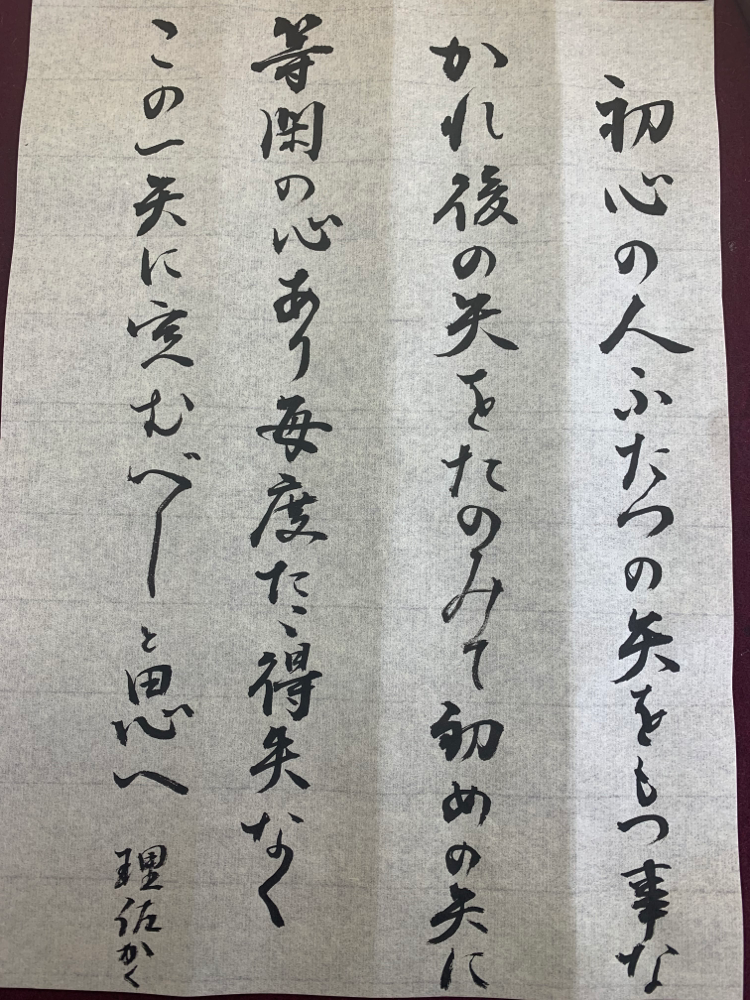 初心の人ふたつの矢をもつ事な
かれ後の矢をたのみて初めの矢に
等閑の心あり毎度たゞ得失なく
この一矢に定むべしと思へ
理佐かく